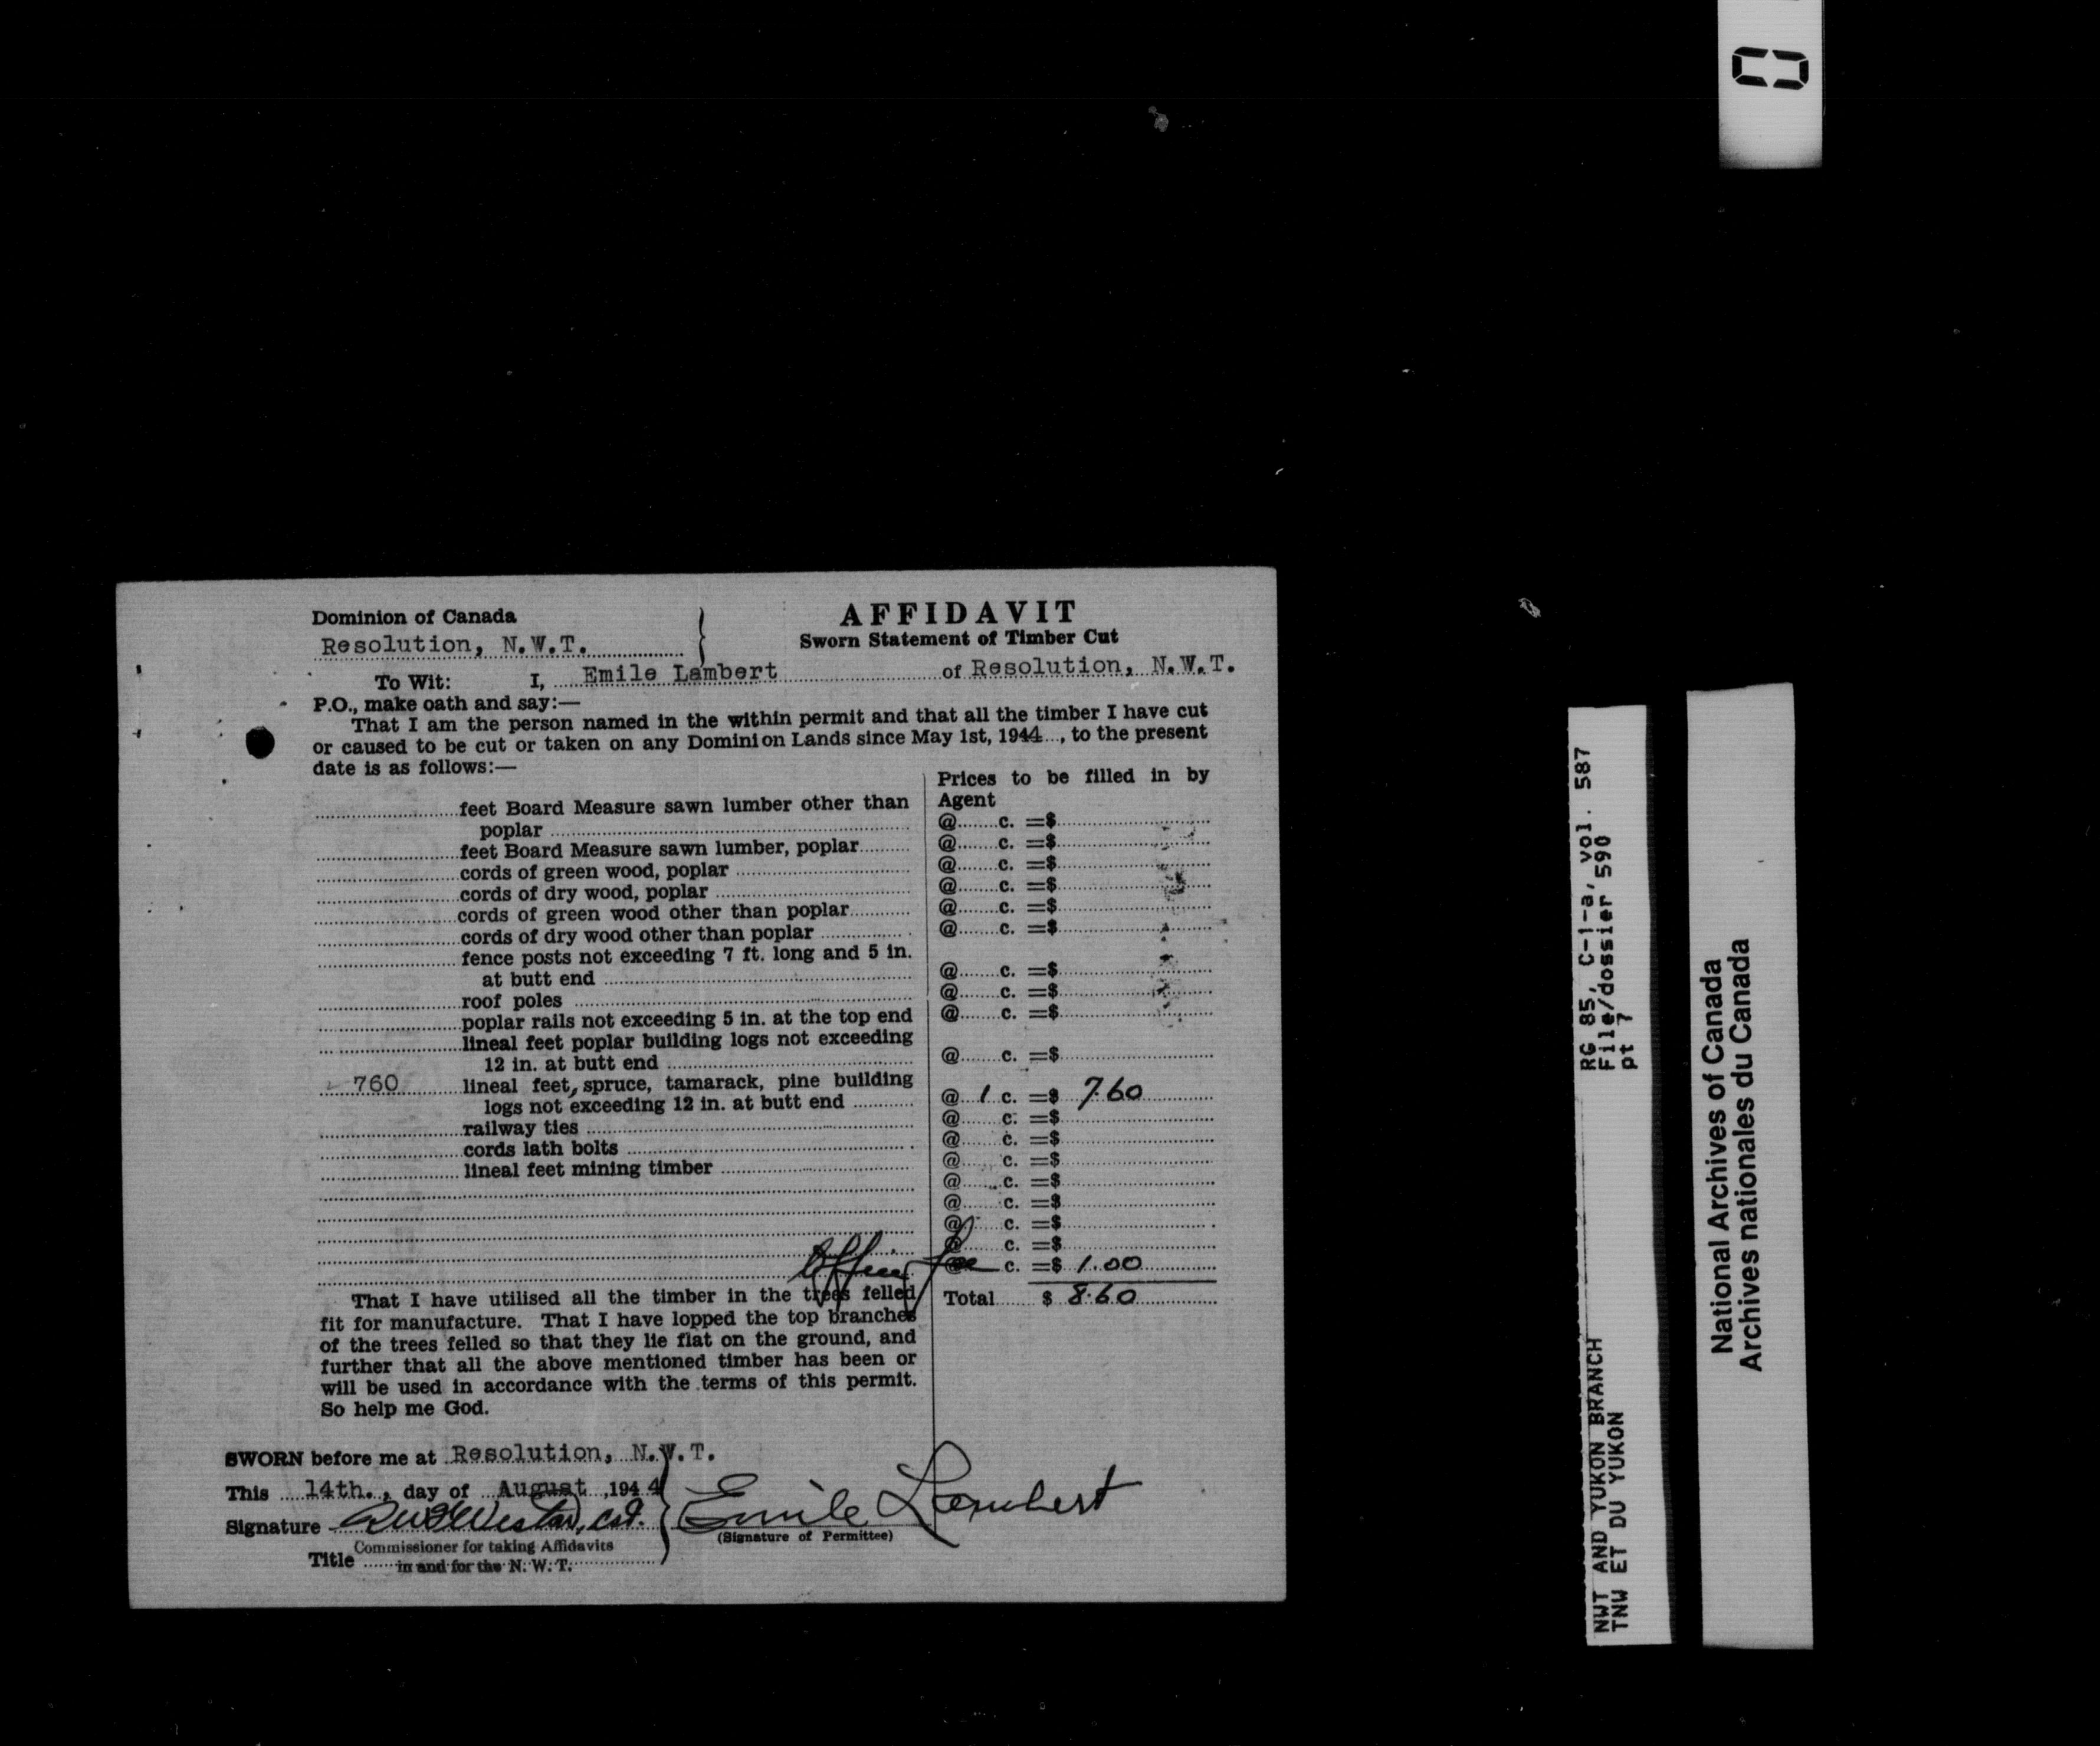 Dominion of Canada
Resolution, N.W.T.
AFFIDAVIT
Sworn Statement of Timber Cut
To Wit: I, Emile Lambert of Resolution, N.W.T.
P.O., make oath and say:—
That I am the person named in the within permit and that all the timber I have cut
or caused to be cut or taken on any Dominion Lands since May 1st, 1944, to the present
date is as follows:—
Prices to be filled in by
Agent
feet Board Measure sawn lumber other than
poplar @ c. =$
feet Board Measure sawn lumber, poplar @ c. =$
cords of green wood, poplar @ c. =$
cords of dry wood, poplar @ c. =$
cords of green wood other than poplar @ c. =$
cords of dry wood other than poplar @ c. =$
fence posts not exceeding 7 ft. long and 5 in.
at butt end @ c. =$
roof poles @ c. =$
poplar rails not exceeding 5 in. at the top end @ c. =$
lineal feet poplar building logs not exceeding
12 in. at butt end @ c. =$
760 lineal feet, spruce, tamarack, pine building
logs not exceeding 12 in. at butt end @ 1 c. =$ 7.60
railway ties @ c. =$
cords lath bolts @ c. =$
lineal feet mining timber @ c. =$
@ c. =$
@ c. =$
@ c. =$
@ c. =$
Office fee c. =$ 1.00
Total $ 8.60
That I have utilised all the timber in the trees felled
fit for manufacture. That I have lopped the top branches
of the trees felled so that they lie flat on the ground, and
further that all the above mentioned timber has been or
will be used in accordance with the terms of this permit.
So help me God.
SWORN before me at Resolution, N.W.T.
This 14th., day of August ,1944
Signature Cst.
Emile Lambert
(Signature of Permittee)
Commissioner for taking Affidavits
Title in and for the N. W. T.
RG 85, C-1-a, vol. 587
File/dossier 590
pt 7
NWT AND YUKON BRANCH
TNW ET DU YUKON
National Archives of Canada
Archives nationales du Canada